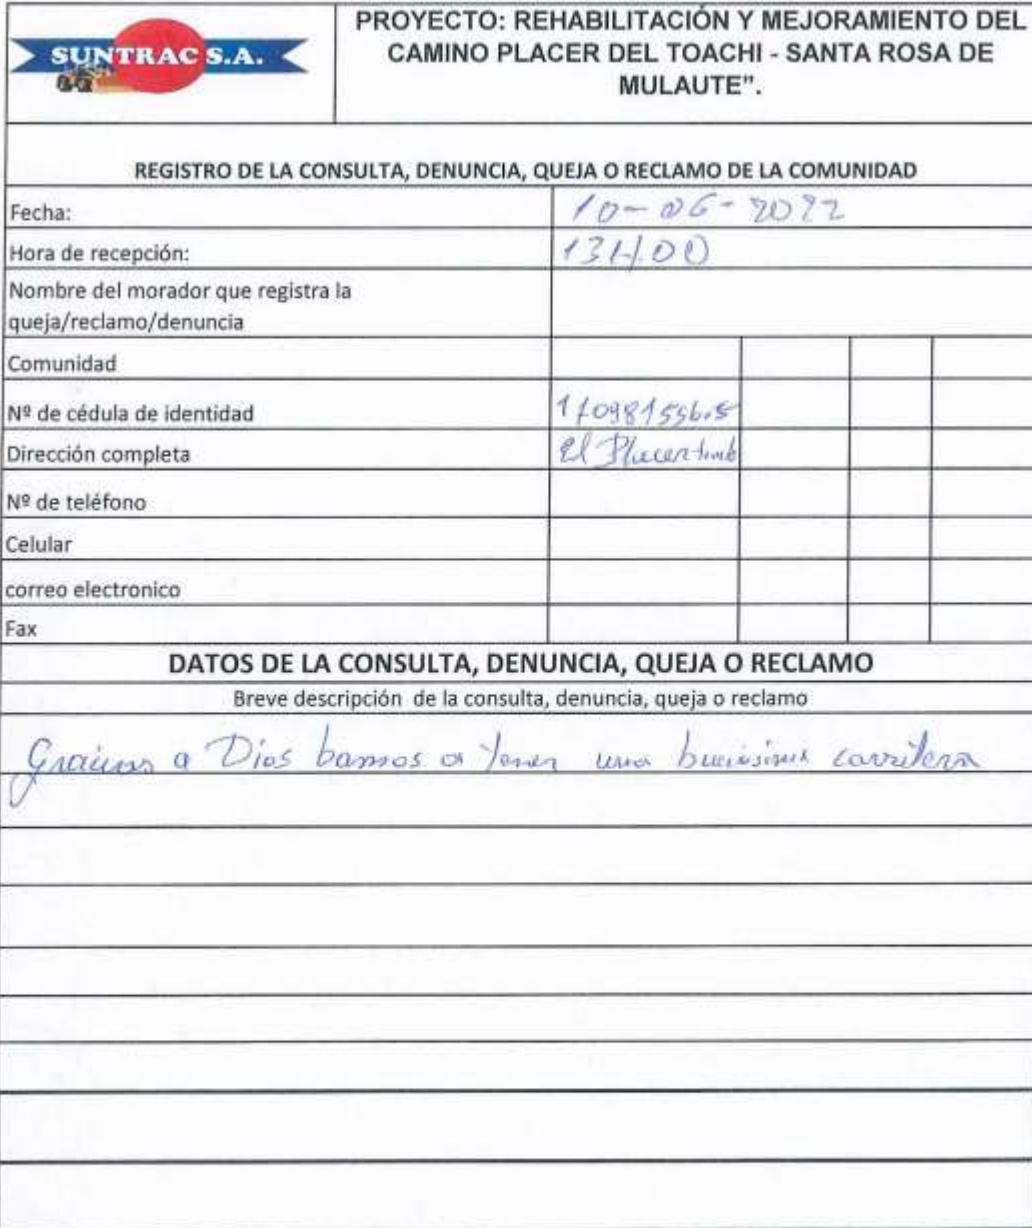 SUNTRAC S.A.
PROYECTO: REHABILITACIÓN Y MEJORAMIENTO DEL
CAMINO PLACER DEL TOACHI - SANTA ROSA DE
MULAUTE".
REGISTRO DE LA CONSULTA, DENUNCIA, QUEJA O RECLAMO DE LA COMUNIDAD
Fecha: 10-06-2022
Hora de recepción: 13H00
Nombre del morador que registra la
queja/reclamo/denuncia
Comunidad
Nº de cédula de identidad
Dirección completa El
Nº de teléfono
Celular
correo electronico
Fax
DATOS DE LA CONSULTA, DENUNCIA, QUEJA O RECLAMO
Breve descripción de la consulta, denuncia, queja o reclamo
Gracias a Dios bamos a tener una carritera